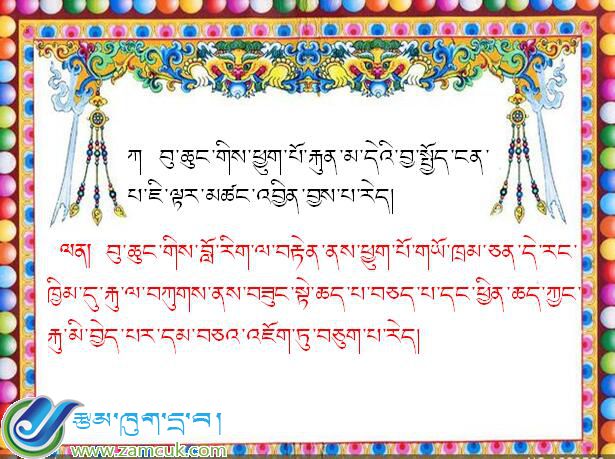 ཀ། བུ་ཆུང་གིས་ཕྱུག་པོ་རྐུན་མ་དེའི་བྱ་སྤྱོད་ངན་
པ་ཇི་ལྟར་མཚང་འབྱིན་བྱས་པ་རེད།
ལན། བུ་ཆུང་གིས་བློ་རིག་ལ་བརྟེན་ནས་ཕྱུག་པོ་གཡོ་ཁྲམ་ཅན་དེ་རང་
ཁྱིམ་དུ་རྐུ་ལ་བཀུགས་ནས་བཟུང་སྟེ་ཆད་པ་བཅད་པ་དང་ཕྱིན་ཆད་ཀྱང་
རྐུ་མི་བྱེད་པར་དམ་བཅའ་འཇོག་ཏུ་བཅུག་པ་རེད།
རྩམ་ཁུག་དྲ་བ།
www.zamcuk.com